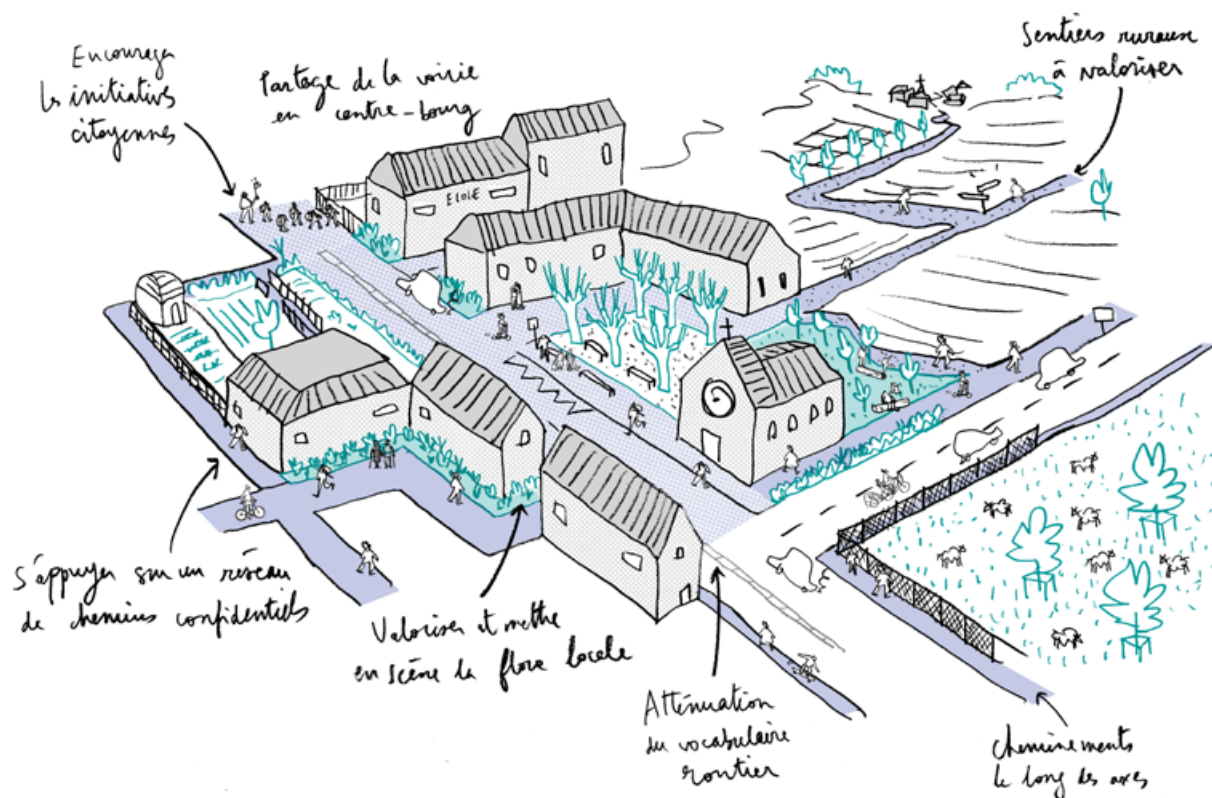 Encourager
les initiatives
citoyennes
Partage de la voirie
en centre-bourg
Sentiers ruraux
à valoriser
ECOLE
S'appuyer sur un réseau
de chemins confidentiels
Valoriser et mettre
en scène la flore locale
Atténuation
du vocabulaire
routier
cheminements
le long des axes